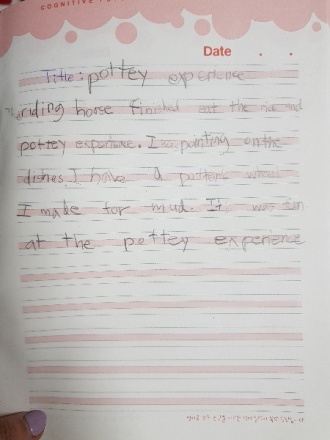 COGNITIVE
Date . .
Title : pottey experience
riding horse finished eat the rice and
pottey experience. I painting on the
dishes. I have a pottery wheel
I made for mud. It was fun
at the pottey experience